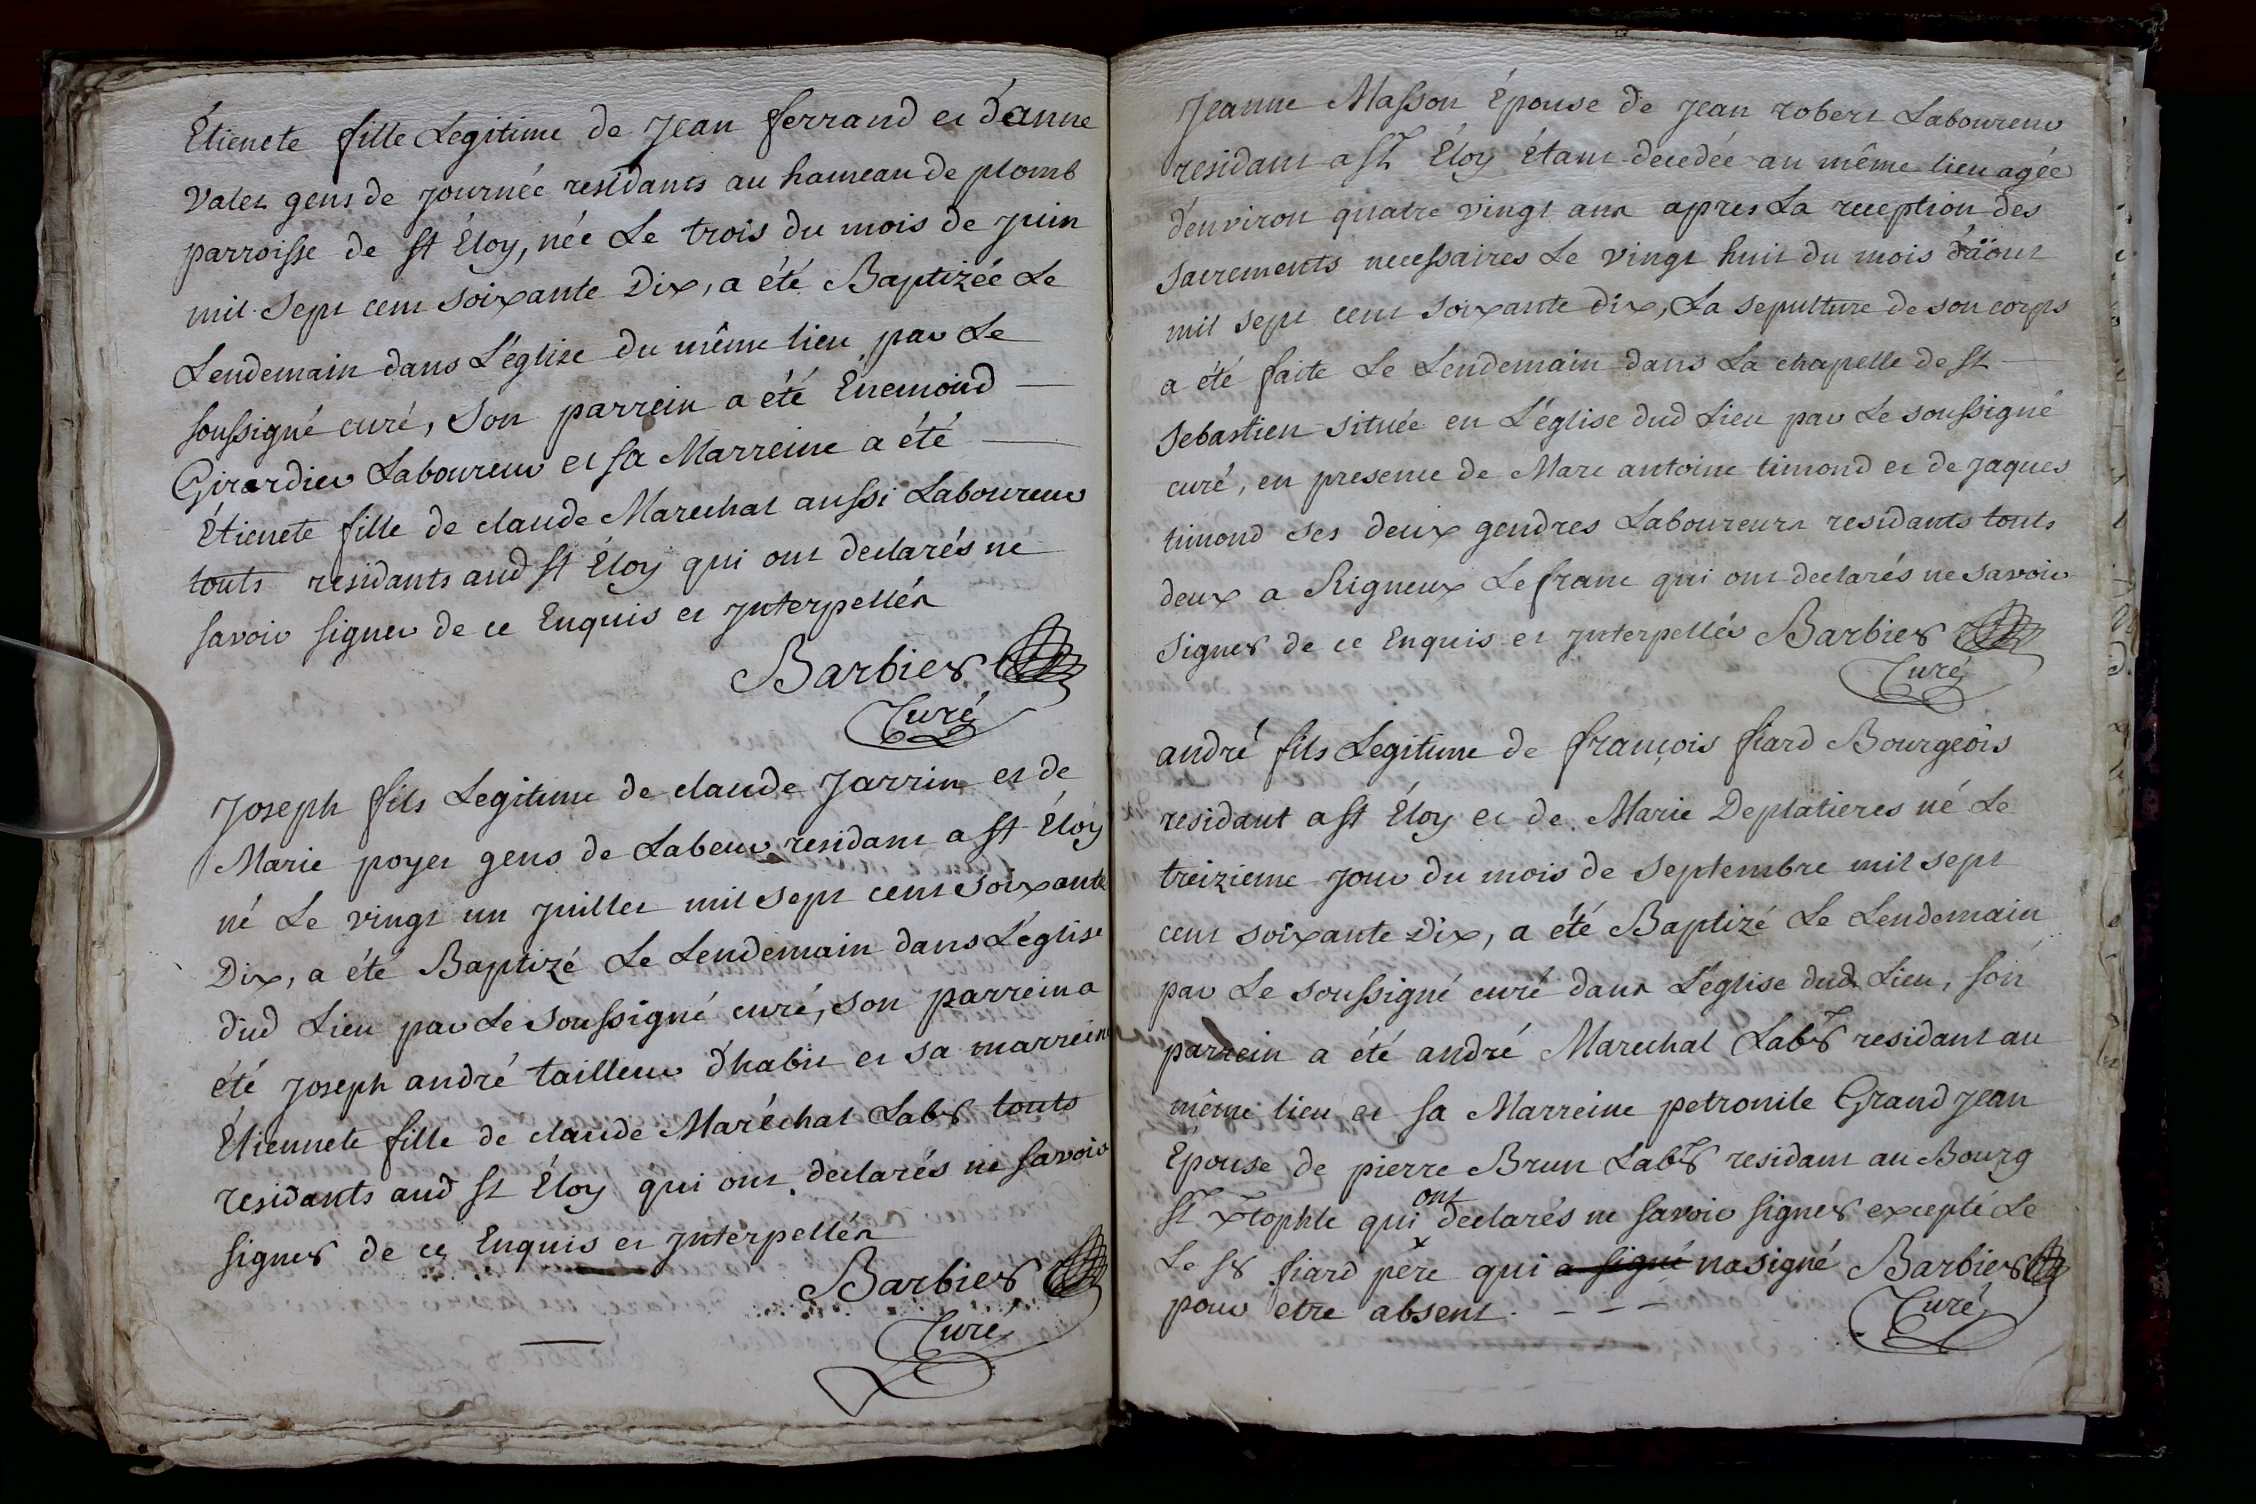 Étienete fille Legitime de Jean ferrand et d'anne
Valet gens de journée residants au hameau de plomb
parroisse de st Éloy, née Le trois du mois de juin
mil sept cent soixante Dix, a été Baptizée Le
Lendemain dans L'église du même lieu par Le
soussigné curé, son parrein a été Enemond
Girardier Laboureur et sa Marreine a été
Étienete fille de claude Marechal aussi Laboureur
touts residants aud st Éloy qui ont declarés ne
savoir signer de ce Enquis et interpellés
Barbier
Curé
Joseph fils Legitime de claude Jarrin et de
Marie poyet gens de Labeur residant a st Éloy
né Le vingt un juillet mil sept cent soixante
Dix, a été Baptizé Le Lendemain dans L'église
dud Lieu par Le soussigné curé, son parrein a
été joseph andré tailleur d'habit et sa marreine
Étiennete fille de claude Maréchal Labr touts
residants aud st Éloy qui ont declarés ne savoir
signer de ce Enquis et interpellés
Barbier
Curé
Jeanne Masson Épouse de jean robert Laboureur
residant a st Éloy étant decedée au même lieu agée
d'environ quatre vingt ans apres La reception des
sacrements necessaires Le vingt huit du mois d'aöut
mil sept cent soixante dix, La sepulture de son corps
a été faite Le Lendemain dans La chapelle de st
sebastien située en L'église dud Lieu par Le soussigné
curé, en presence de Marc antoine timond et de jaques
timond ses deux gendres Laboureurs residants touts
deux a Rigneux Le franc qui ont declarés ne savoir
signer de ce Enquis et interpellés Barbier
Curé
andré fils Legitime de françois fiard Bourgeois
residant a st Éloy et de Marie Deplatieres né Le
treizieme jour du mois de septembre mil sept
cent soixante Dix, a été Baptizé Le Lendemain
par Le soussigné curé dans L'église dud Lieu, son
parrein a été andré Marechal Labr residant au
même lieu et sa Marreine petronile Grand jean
Épouse de pierre Brun Labr residant au Bourg
st xtophle qui ont declarés ne savoir signer excepté Le
Le sr fiard père qui a signé na signé Barbier
pour etre absent. Curé